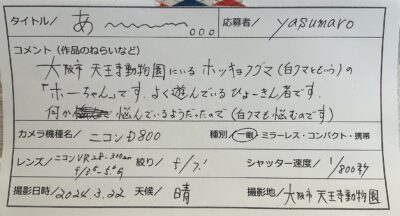 タイトル/ あ〜〜〜〜。。。 応募者/ yasumaro
コメント（作品のねらいなど）
大阪市 天王寺動物園にいる ホッキョクグマ（白クマともいう）の
「ホーちゃん」です。よく遊んでいる ひょーきん者です。
何か 悩んでいるようだったので（白クマも悩むのです）
カメラ機種名/ ニコンD800 種別/ 一眼・ミラーレス・コンパクト・携帯
レンズ/ ニコンVR28-300mm f/3.5-5.6G 絞り/ f/7.1 シャッター速度/ 1/800秒
撮影日時/ 2024.3.22 天候/ 晴 撮影地/ 大阪市 天王寺動物園